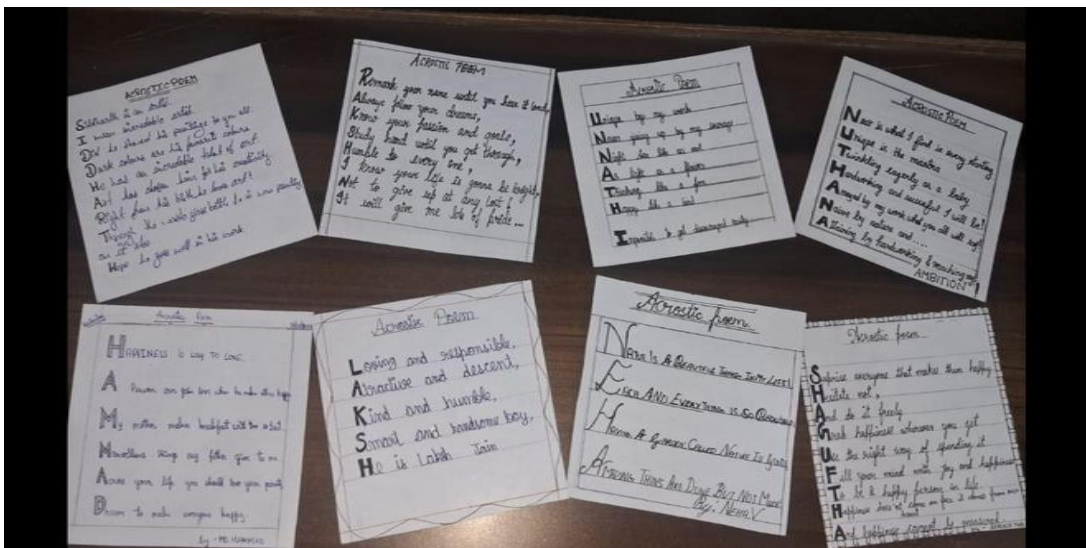 ACROSTIC POEM
Siddharth is an artist.
I mean incredible artist
Dark colours are his favourite colours
He had an incredible talent of art.
Art has chosen him for his creativity
Right from his birth he loves art!
Hope he goes well in his work
ACROSTIC POEM
Remark your name until you have it
Always follow your dreams,
Know your passion and goals,
Study hard until you get through,
Humble to every one,
I know your life is gonna be bright,
Not to give up at any cost,
It will give me lots of pride...
Acrostic Poem
Unique by my work
Never giving up by my courage
Thinking like a
Happy like a
Impossible to get discouraged easily
ACROSTIC POEM
New is what I find in every starting
Unique is the mantra
Twinkling eagerly as a baby
Hardworking and successful I will be!
Amazed by my work what you all will
Naive by nature and ....
Attaining by hardworking & reaching my
AMBITION!
Acrostic Poem
HAPPINESS is way to LOVE
A person can
My mother makes breakfast with
Marvellous things my father give to me
your life you should love your parents
Dream to make everyone happy
by - MD. HAMMAD
Acrostic Poem
Loving and responsible,
Attractive and descent,
Kind and humble,
Smart and handsome boy,
He is Laksh Jain
Acrostic poem
NEHA IS A BEAUTIFUL THING IN MY LIFE!
EACH AND EVERYTHING IS SO
A GARDEN CALLED NATURE IS
AMAZING THINGS ARE DONE BUT NOT MADE
By: NEHA.V
Acrostic poem
Suprise everyone that makes them happy
Hesitate not,
And do it freely
Seak happiness wherever you get
Use the right way of spending it
Fill your mind with joy and happiness
To be a happy person in life
Happiness does not come on face it comes from
And happiness cannot be measured